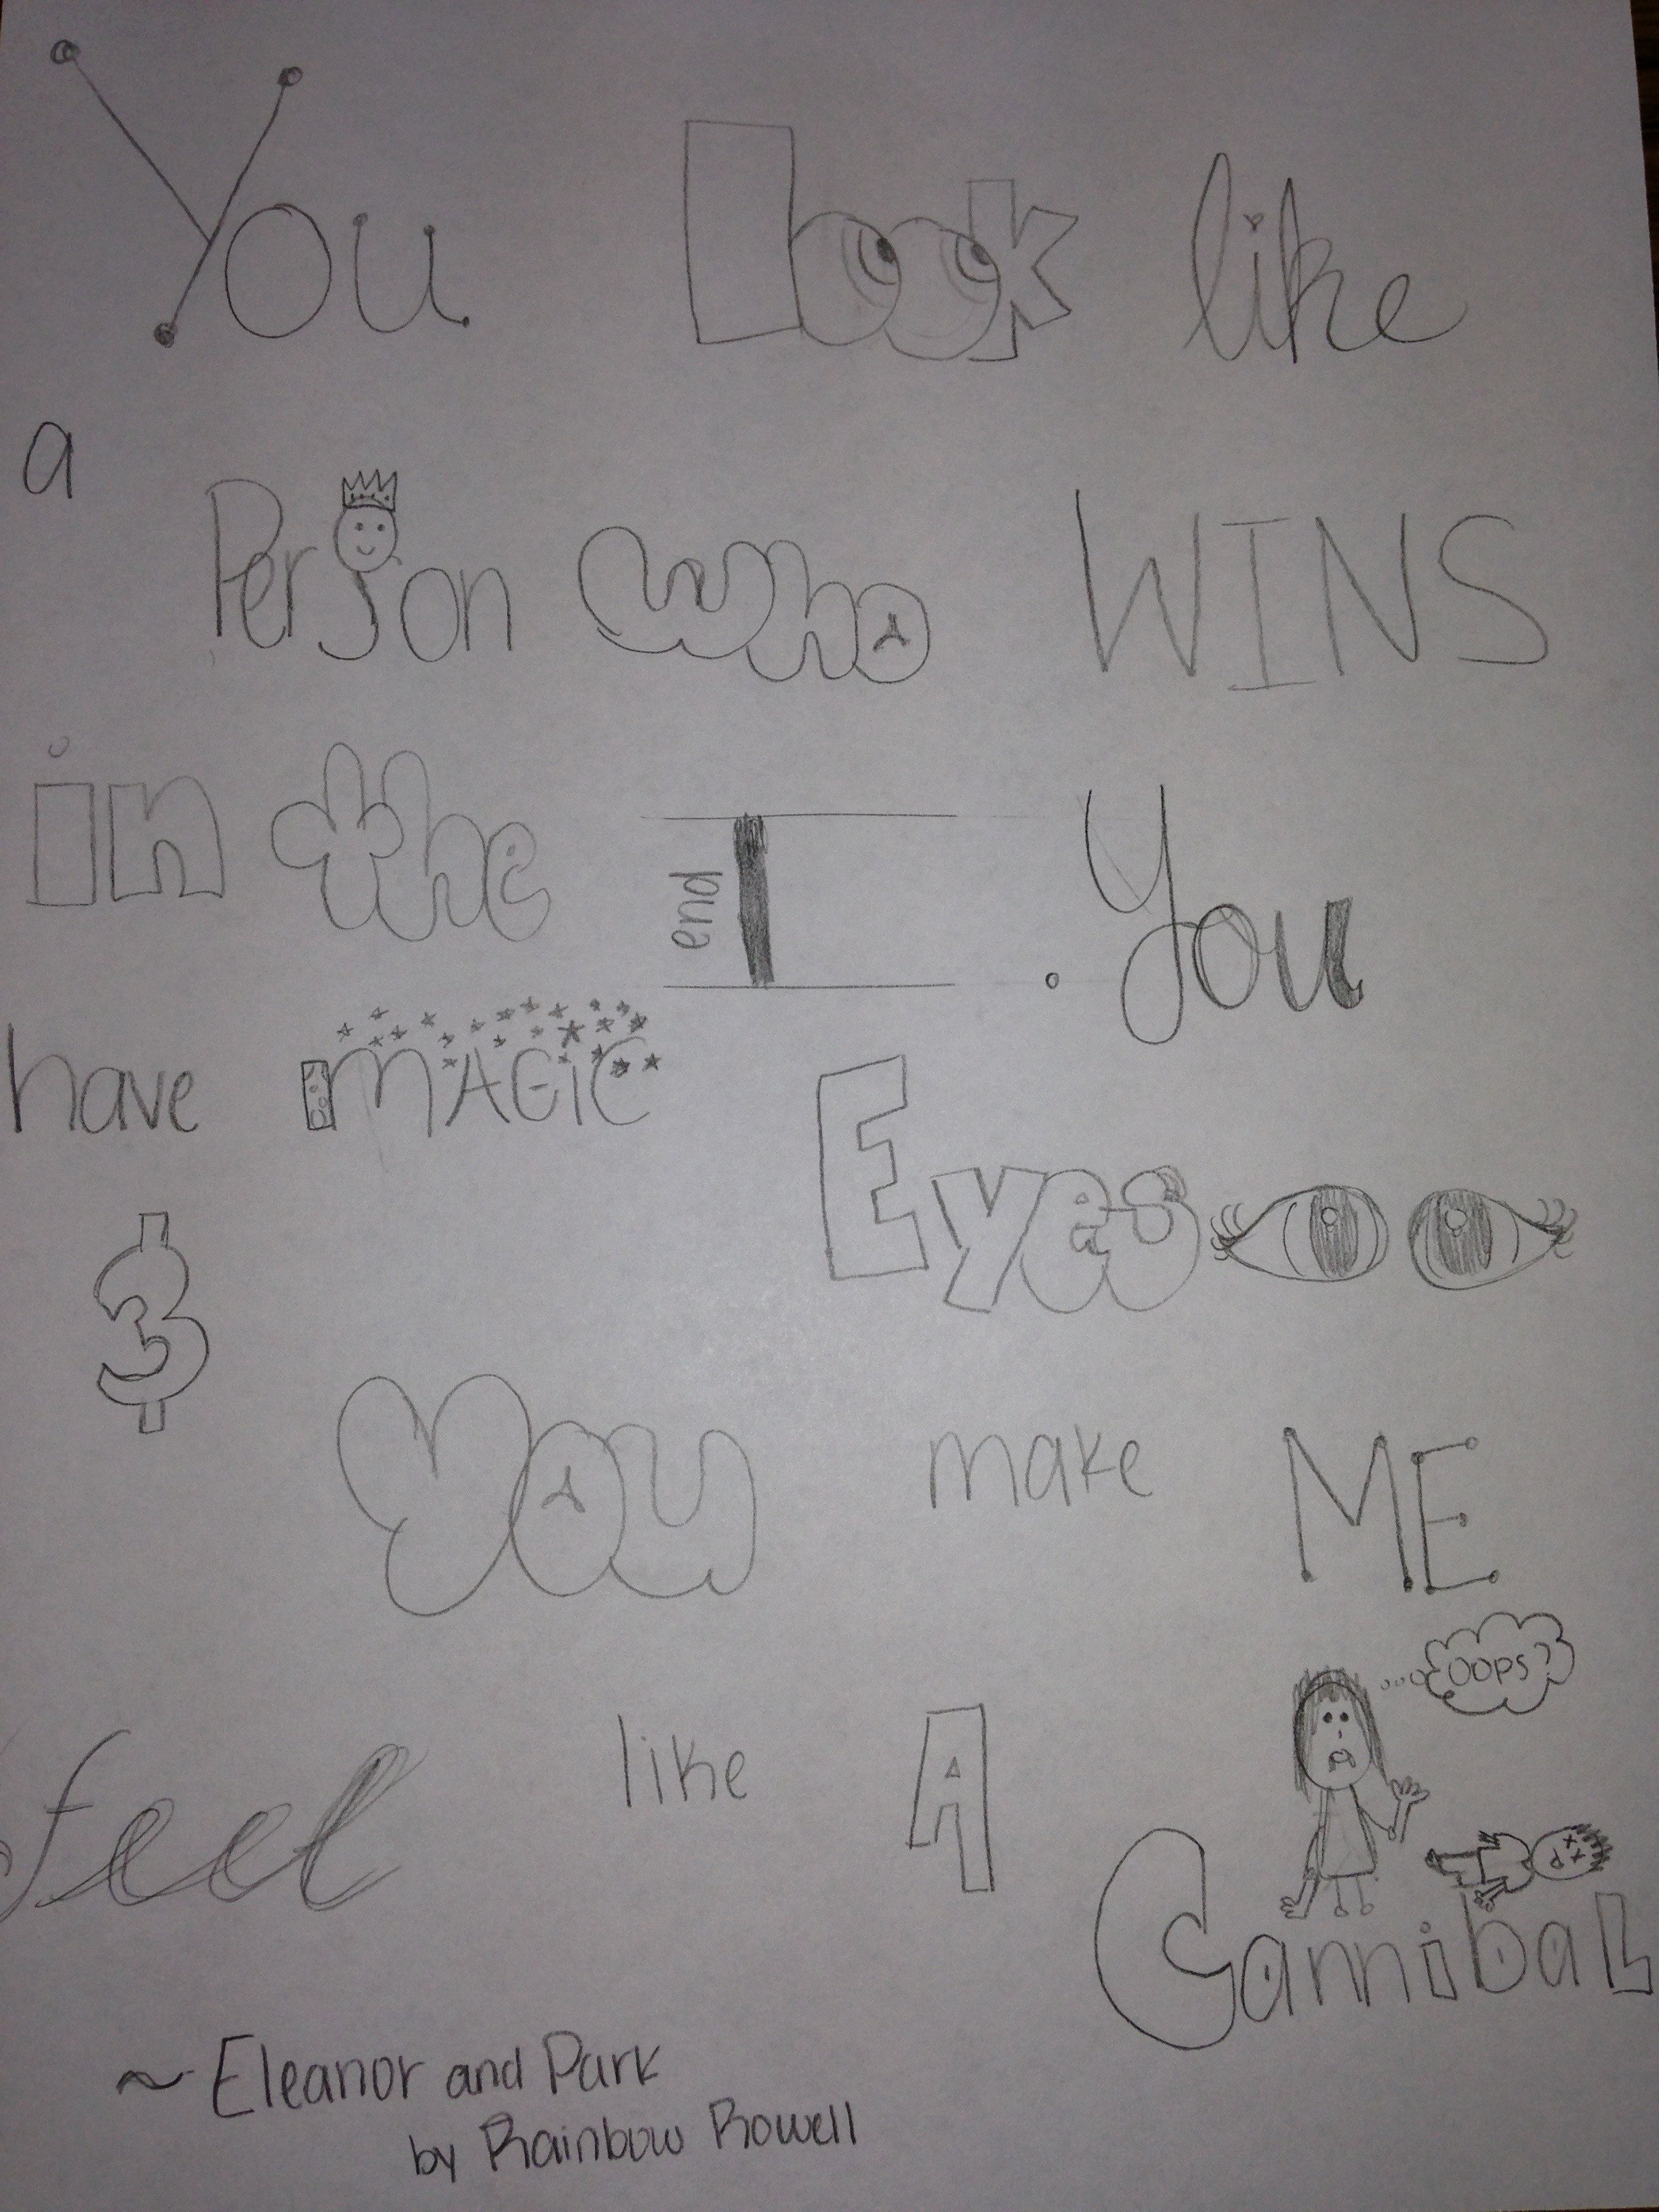 You Look like
a Person who WINS
in the end . You
have MAGiC
Eyes
&
You make ME
OOPS?
feel like A
CannibaL
~ Eleanor and Park
by Rainbow Rowell